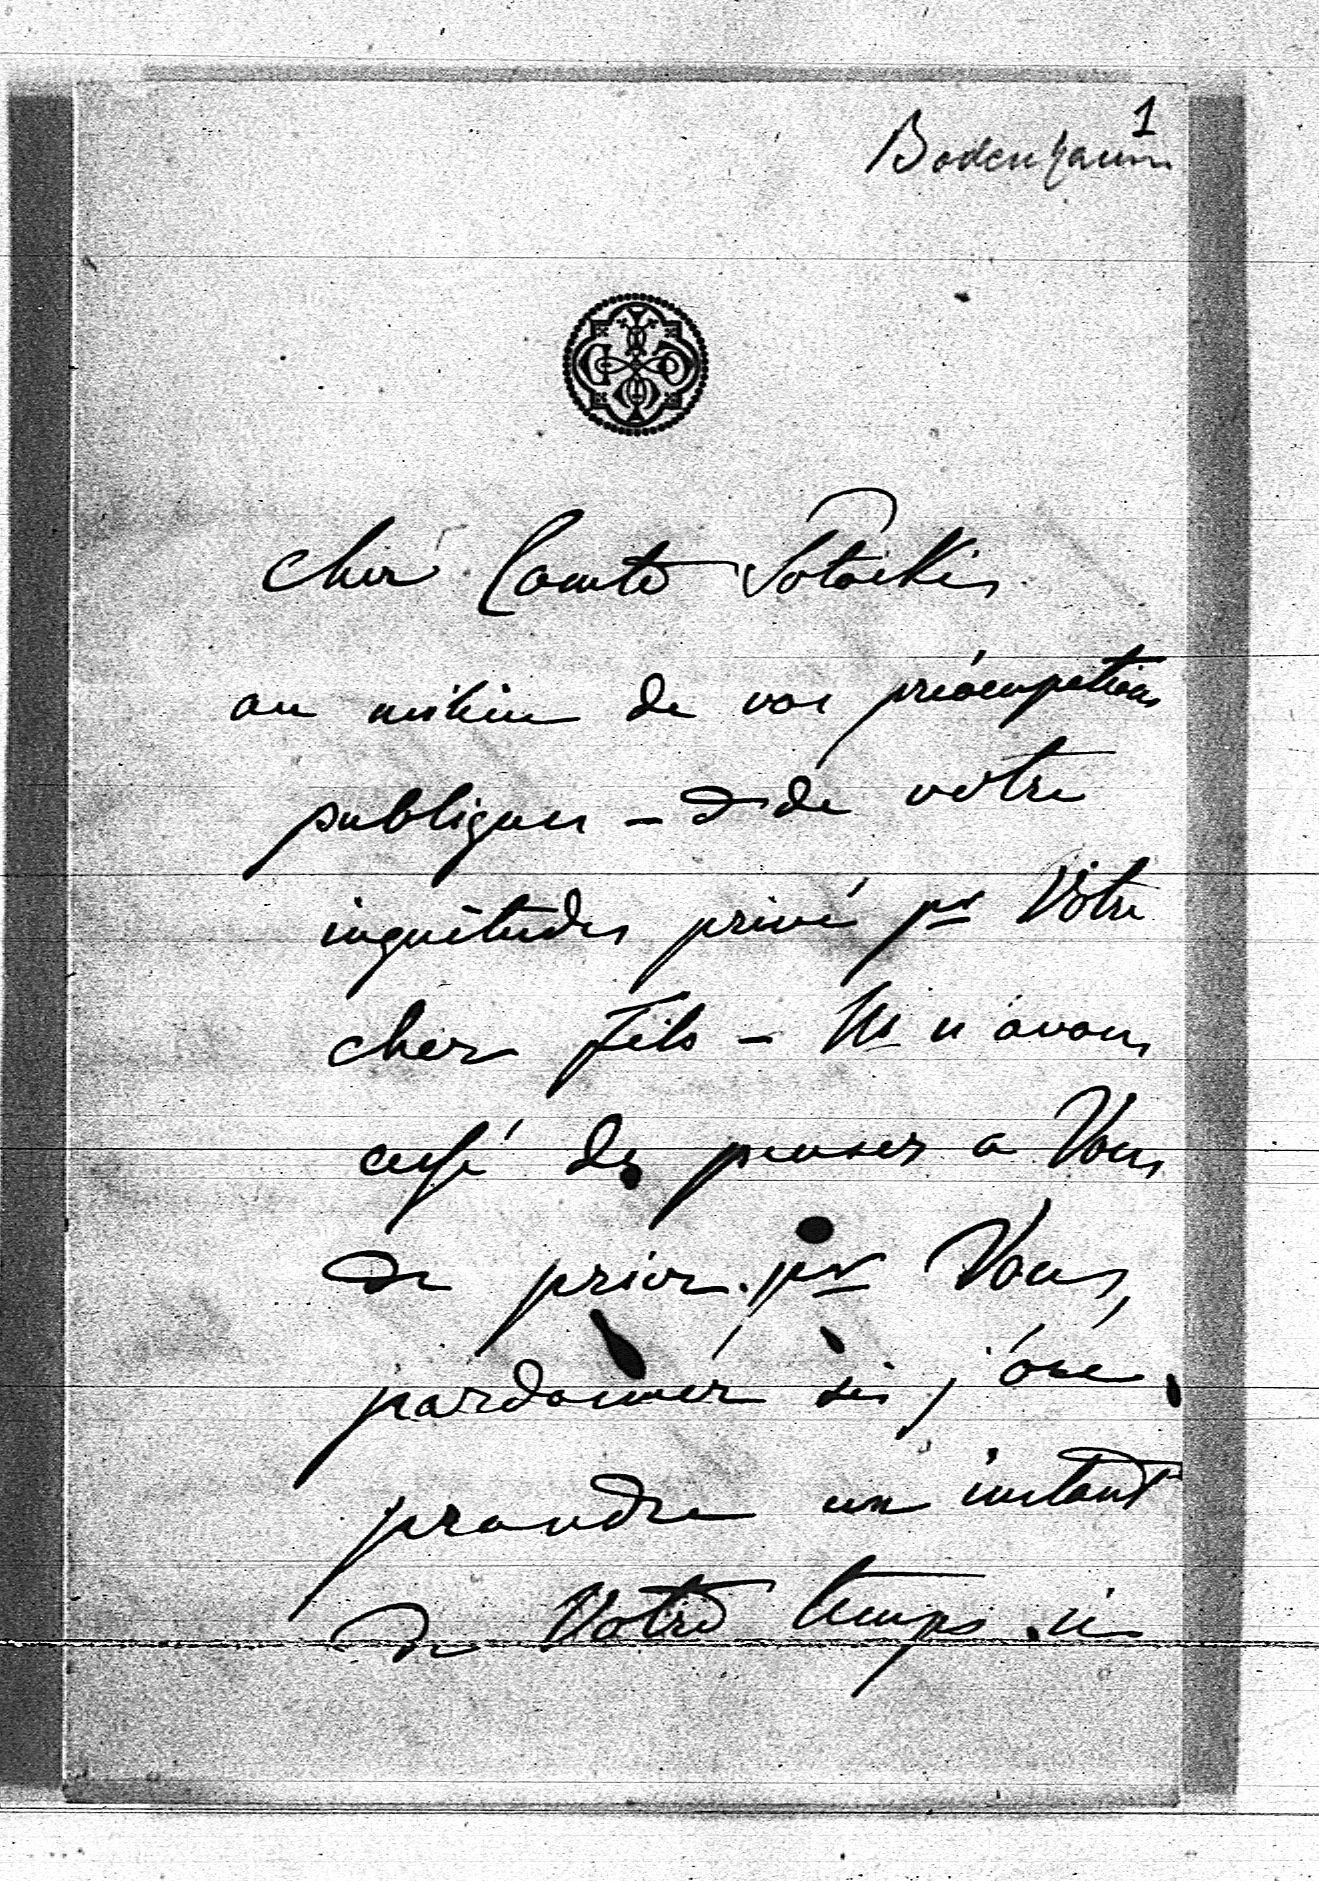 1
Bodenhaum
cher Comte Potocki
au milieu de vos préocupations
publiques – & de votre
inquiétudes privé pr Votre
cher fils – Ns n'avons
cessé de penser a Vous
de prier pr Vous,
pardonner si j'ose
prandre un instant
de Votre temps si